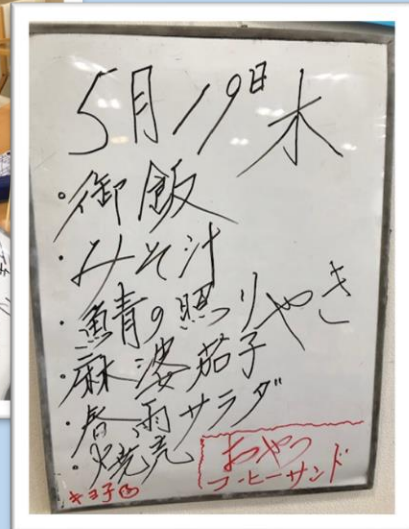 5月19日 木
・御飯
・みそ汁
・鯖の照りやき
・麻婆茄子
・春雨サラダ
・焼売
おやつ
コーヒーサンド
キヨ子